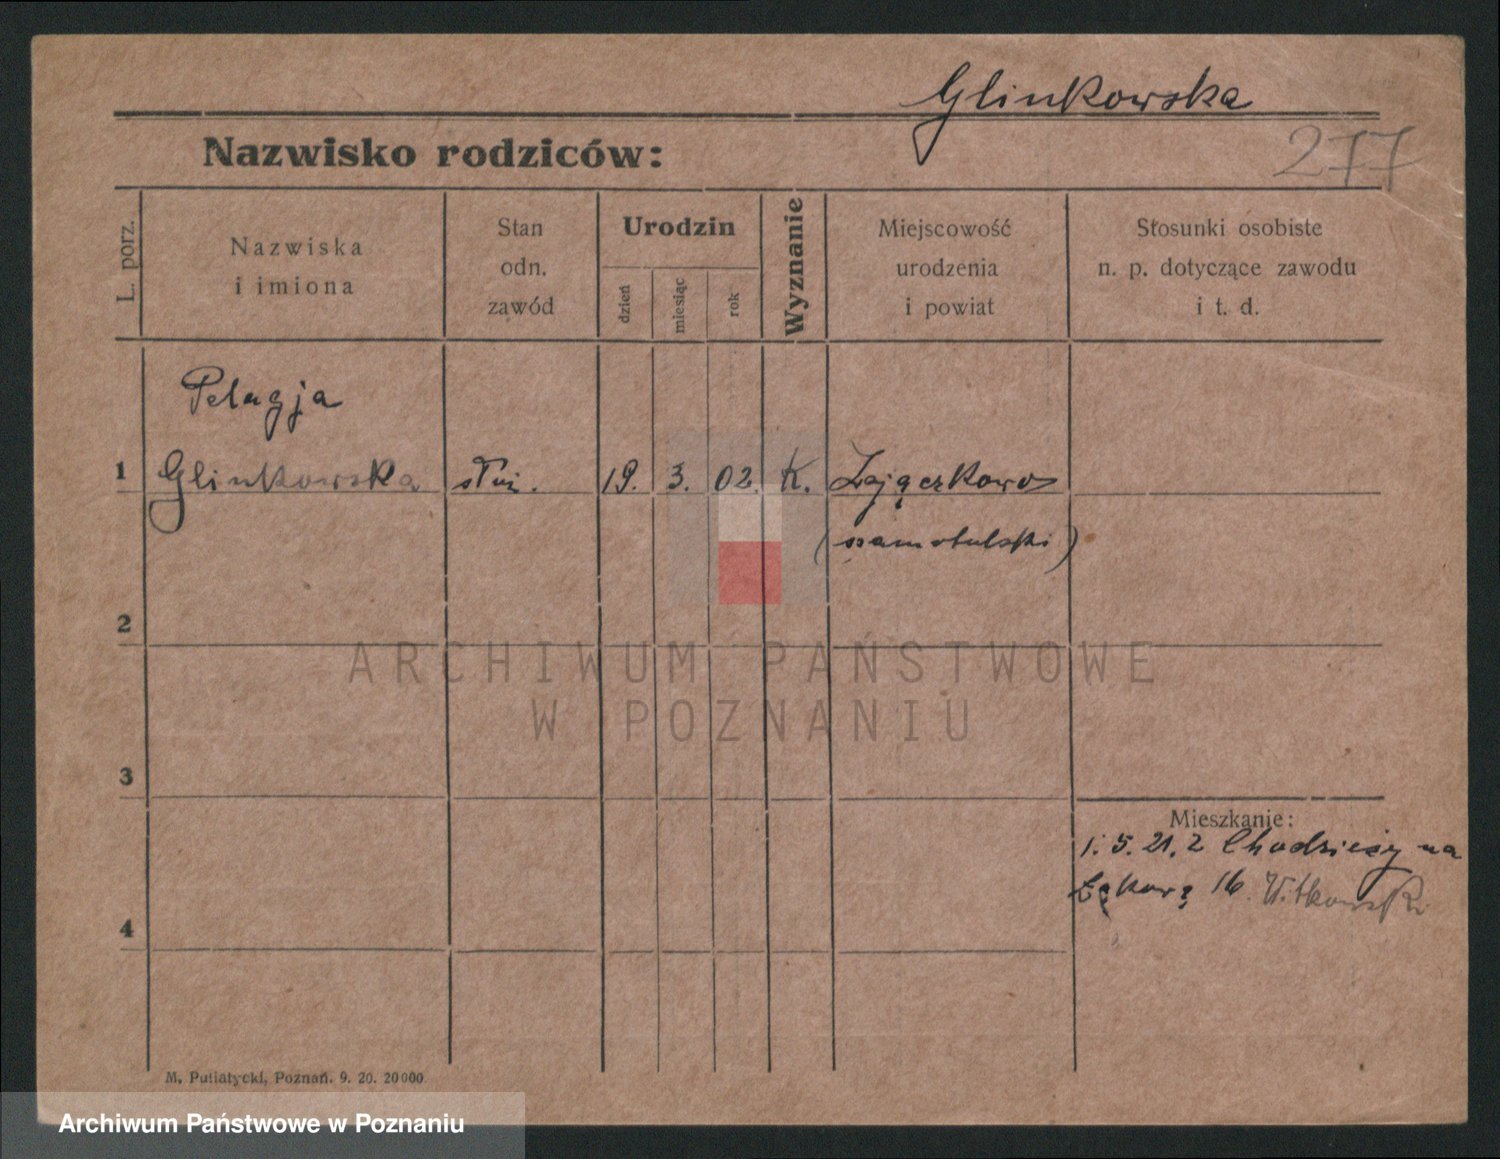 Glinkowska
277
Nazwisko rodziców:
L. porz.
Nazwiska
i imiona
Stan
odn.
zawód
Urodzin
dzień
miesiąc
rok
Wyznanie
Miejscowość
urodzenia
i powiat
Stosunki osobiste
n. p. dotyczące zawodu
i t. d.
Pelagja
1 Glinkowska służ. 19. 3. 02. K. Zajączkowo
(szamotulski)
2
3
4
Mieszkanie:
1. 5. 21. z Chodzieży na
Łąkową 16. Witkowski
M. Putiatycki, Poznań. 9. 20. 20000
ARCHIWUM PAŃSTWOWE
W POZNANIU
Archiwum Państwowe w Poznaniu